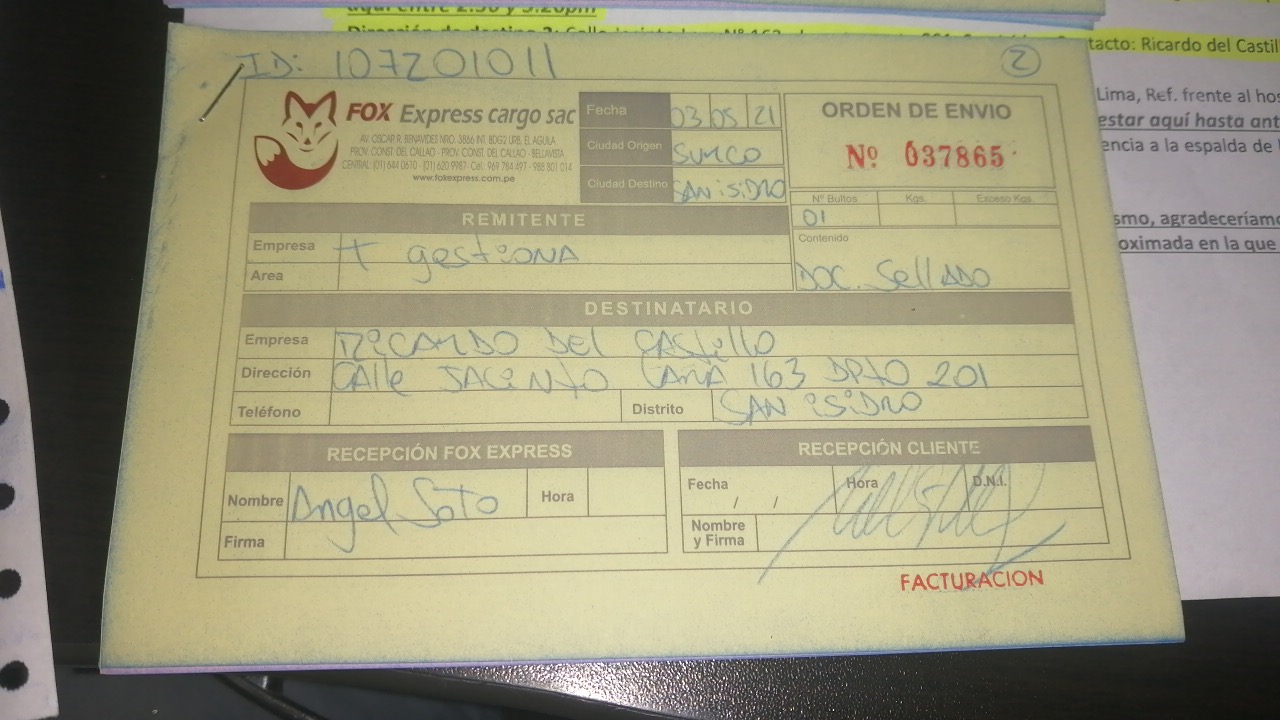 aquí entre 2:30 y 5:20pm
Contacto: Ricardo del Castil
Lima, Ref. frente al hos
estar aquí hasta ant
encia a la espalda de
smo, agradeceríamo
oximada en la que
ID: 107201011
2
FOX Express cargo sac
AV. OSCAR R. BENAVIDES NRO. 3866 INT. BDG2 URB. EL AGUILA
PROV. CONST. DEL CALLAO - PROV. CONST. DEL CALLAO - BELLAVISTA
CENTRAL (01) 644 0610 - (01) 620 9987- Cel. 969 784 497 - 988 801 014
www.foxexpress.com.pe
Fecha 03 05 21
Ciudad Origen SURCO
Ciudad Destino SAN ISIDRO
ORDEN DE ENVIO
Nº 037865
Nº Bultos Kgs. Exceso Kgs.
01
Contenido
DOC. Sellado
REMITENTE
Empresa + gestiona
Area
DESTINATARIO
Empresa RICARDO DEL CASTILLO
Dirección CALLE JACINTO LARA 163 DPTO 201
Teléfono Distrito SAN ISIDRO
RECEPCIÓN FOX EXPRESS
Nombre Angel Soto Hora
Firma
RECEPCIÓN CLIENTE
Fecha / / Hora D.N.I.
Nombre y Firma
FACTURACION